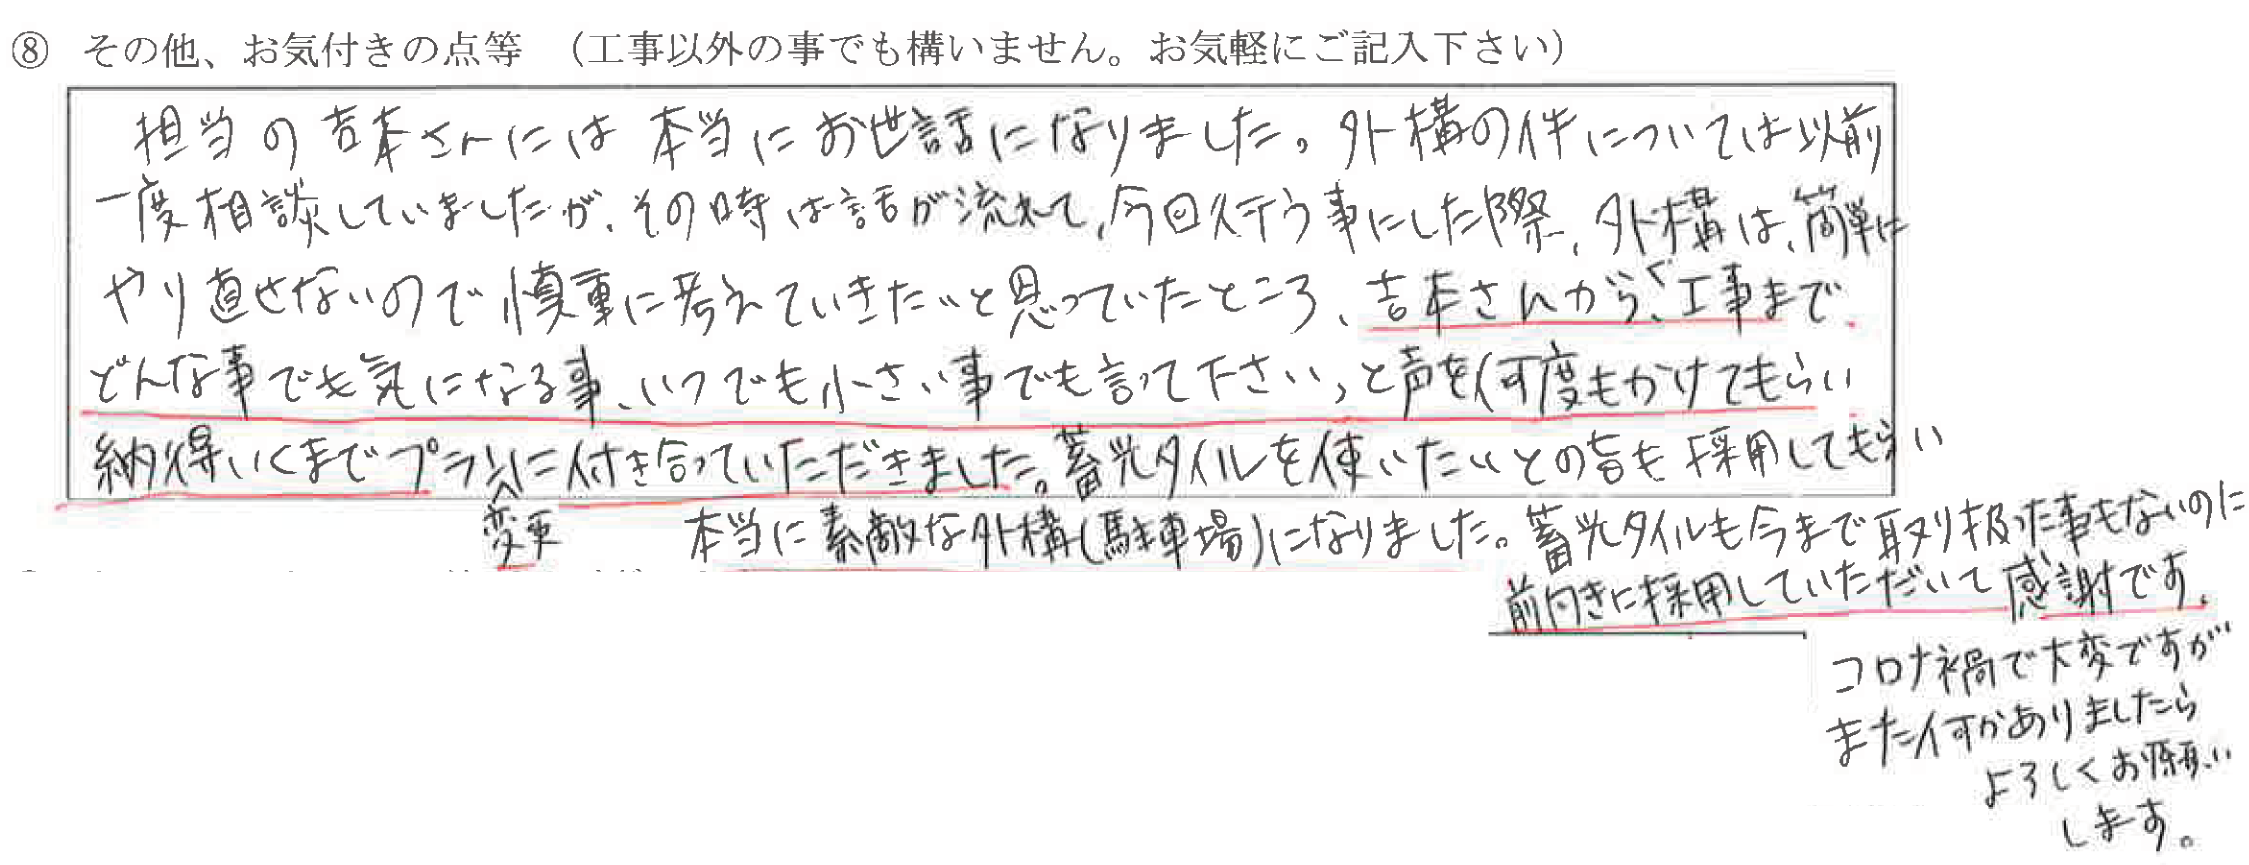 ⑧ その他、お気付きの点等 （工事以外の事でも構いません。お気軽にご記入下さい）
担当の吉本さんには本当にお世話になりました。外構の件については以前
一度相談していましたが、その時は話が流れて、今回行う事にした際、外構は、簡単に
やり直せないので慎重に考えていきたいと思っていたところ、吉本さんから、「工事まで、
どんな事でも気になる事、いつでも小さい事でも言って下さい」と声を何度もかけてもらい
納得いくまでプラン変更に付き合っていただきました。蓄光タイルを使いたいとの旨も採用してもらい
本当に素敵な外構(駐車場)になりました。蓄光タイルも今まで取り扱った事もないのに
前向きに採用していただいて感謝です。
コロナ禍で大変ですが
また何かありましたら
よろしくお願い
します。